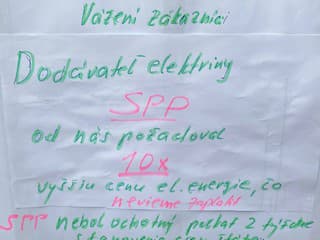 Vážení zákazníci
Dodávateľ elektriny
SPP
od nás požadoval
10x
vyššiu cenu el. energie, čo
nevieme zaplatiť
SPP nebol ochotný počkať 2 týždne